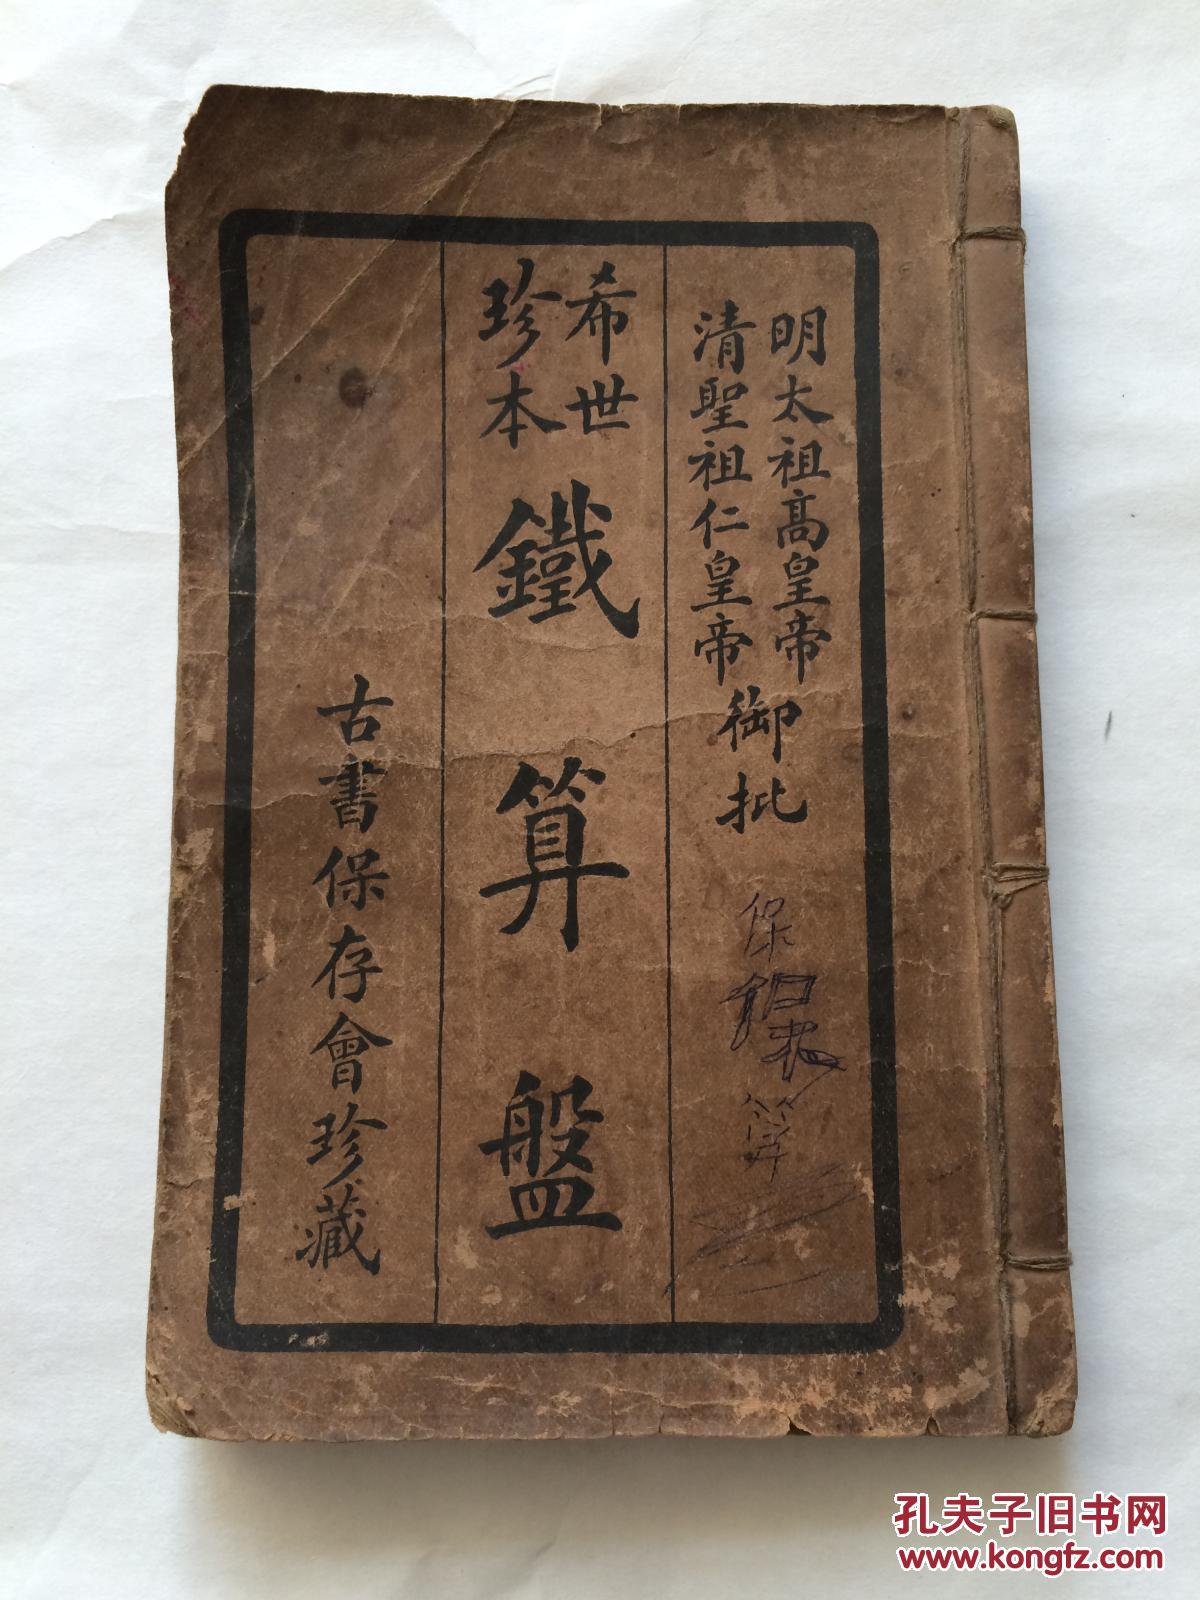 明太祖高皇帝
清聖祖仁皇帝
御批
希世
珍本
鐵算盤
古書保存會珍藏
孔夫子旧书网
www.kongfz.com